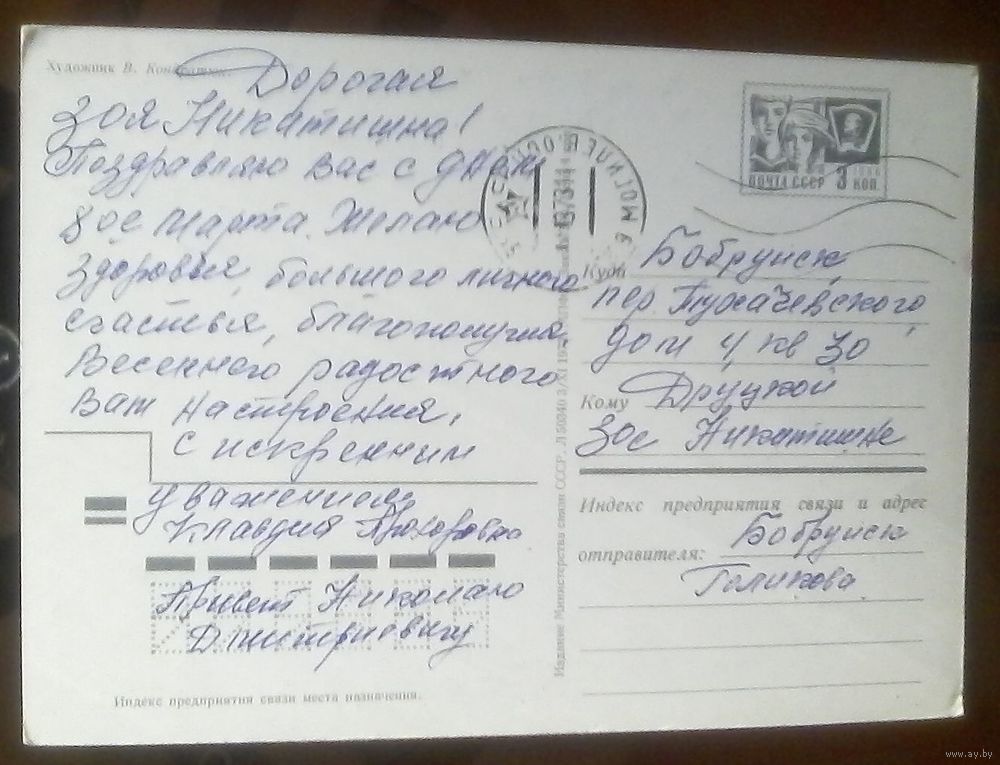 Художник В.
Дорогая
Зоя Никитишна!
Поздравляю Вас с днём
8ое Марта. Желаю
здоровья, большого личного
счастья, благополучия,
Весеннего радостного
Вам настроения.
С искренним
уважением
Клавдия Прохоровна
Привет Николаю
Дмитриевичу
Индекс предприятия связи места назначения.
Издание Министерства связи СССР.
ПОЧТА СССР 3 КОП.
1966
Куда Бобруйск
пер. Тухачевского,
дом 4, кв 30
Кому Друцкой
Зое Никитишне
Индекс предприятия связи и адрес
отправителя: Бобруйск
Голикова
www.ay.by